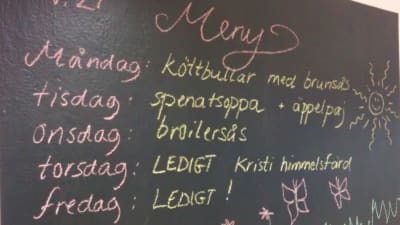 v. 21
Meny
Måndag: köttbullar med brunsås
tisdag: spenatsoppa + äppelpaj
onsdag: broilersås
torsdag: LEDIGT Kristi himmelsfärd
fredag: LEDIGT!